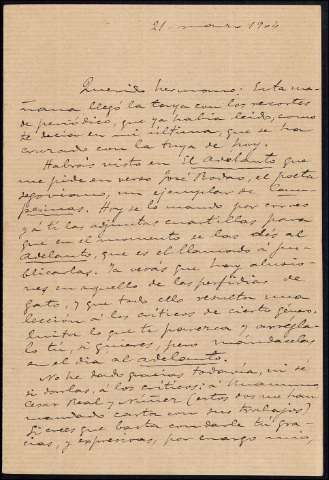 21 marzo 1904
Querido hermano: Esta ma-
ñana llegó la tuya con los recortes
de periódico, que ya había leido, como
te decia en mi última, que se ha
cruzado con la tuya de hoy.
Habrás visto en El Adelanto que
me pide en verso José Rodao, el poeta
segoviano, un ejemplar de Cam-
pesinas. Hoy se lo mando por correo
y á tí las adjuntas cuartillas para
que en el momento se las dés al
Adelanto, que es el llamado á pu-
blicarlas. Ya verás que hay alusio-
nes en aquello de las perfidias de
gato, y que todo ello resulta una
lección á los críticos de cierto género.
lo que te parezca y arregla-
lo tú, si quieres, pero mándaselas
en el día al Adelanto.
No he dado gracias todavía, ni sé
si darlas, á los críticos; á Unamuno
Cesar Real y Núñez (estos dos me han
mandado carta con sus trabajos)
Si crees que basta con darle tú gra-
cias, y expresivas, por encargo mio,